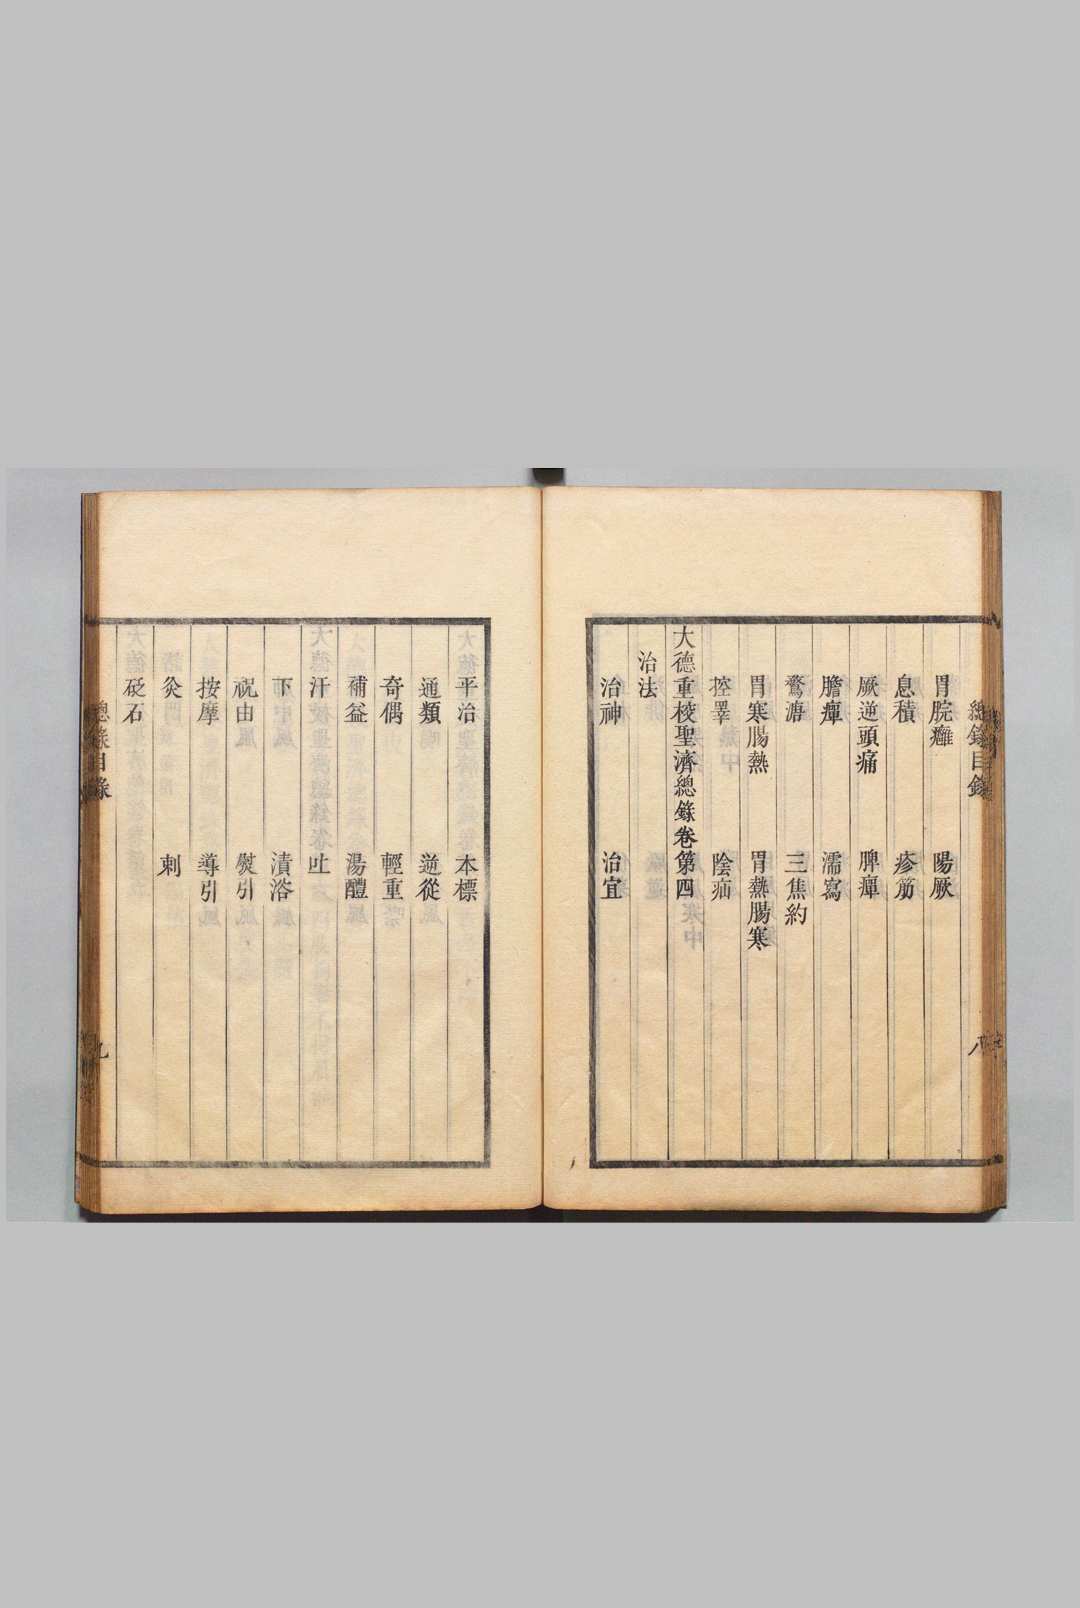 總錄目錄 八
胃脘癰 陽厥
息積 疹筋
厥逆頭痛 脾癉
膽癉 濡瀉
鶩溏 三焦約
胃寒腸熱 胃熱腸寒
控睪 陰疝
大德重校聖濟總錄卷第四
治法
治神 治宜
平治 本標
通類 逆從
奇偶 輕重
補益 湯醴
汗 吐
下 漬浴
祝由 熨引
按摩 導引
灸 刺
砭石
總錄目錄 九